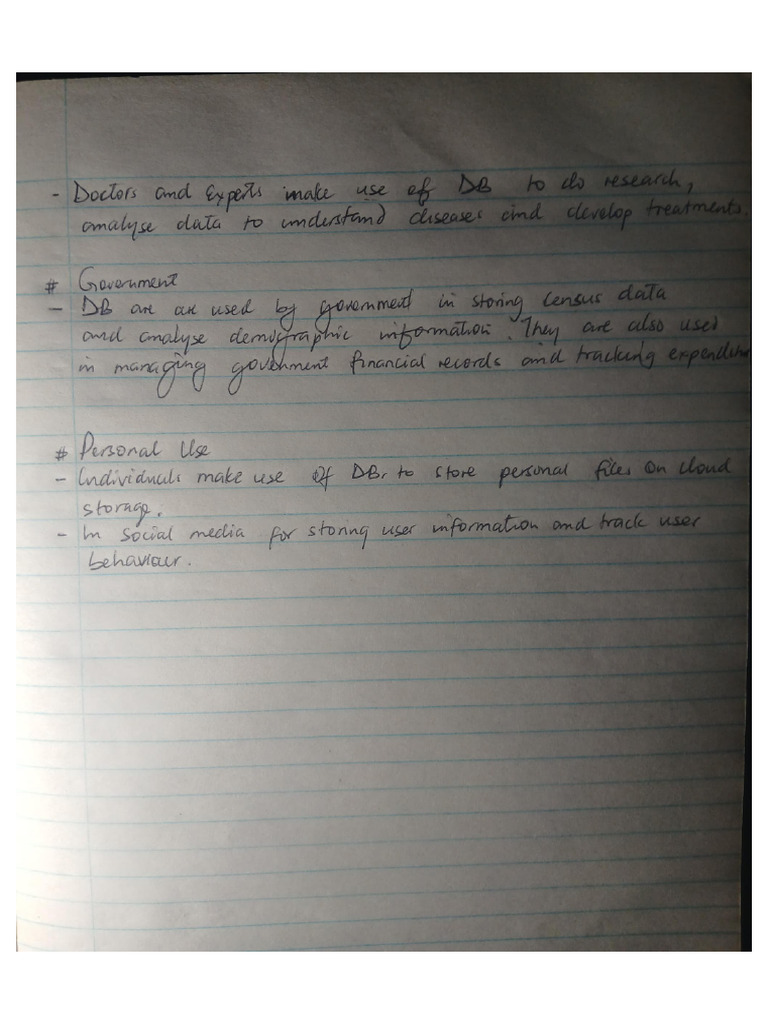 - Doctors and Experts make use of DB to do research,
analyse data to understand diseases and develop treatments.
# Government
- DB are are used by government in storing census data
and analyse demographic information. They are also used
in managing government financial records and tracking
# Personal Use
- Individuals make use of DB, to store personal files on cloud
storage.
- In social media for storing user information and track user
behaviour.